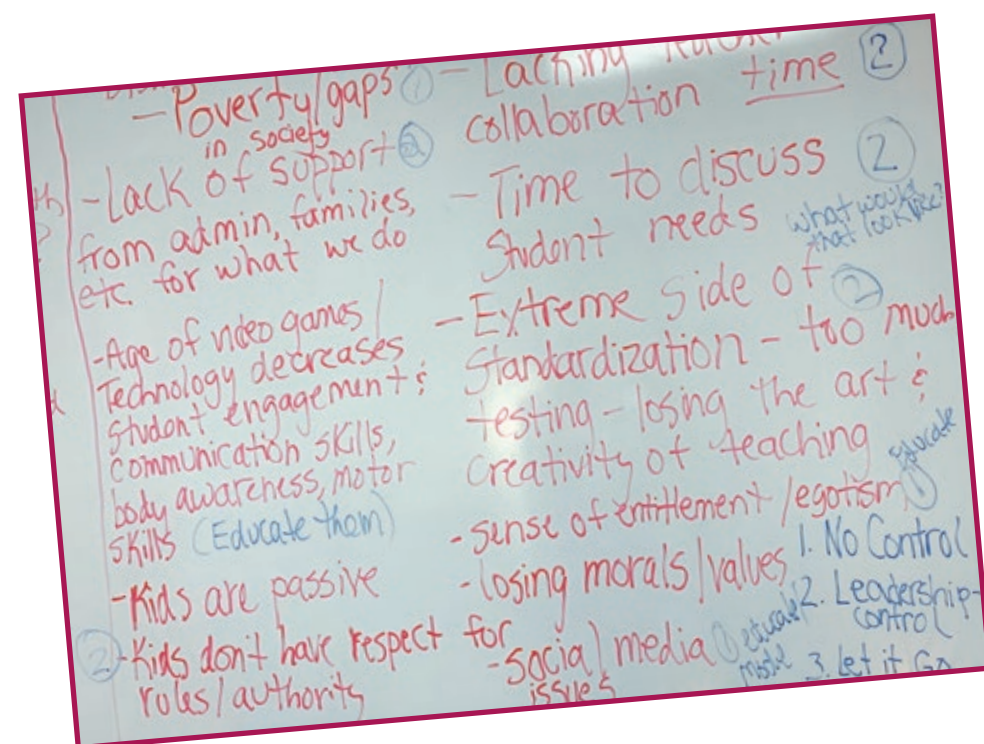 - Poverty/gaps ①
in society
- Lack of support ②
from admin, families,
etc. for what we do
- Age of video games /
Technology decreases
student engagement &
communication skills,
body awareness, motor
skills (Educate them)
- Kids are passive
② - Kids don't have respect for
rules/authority
- Lacking
collaboration time ②
- Time to discuss ②
student needs
what would
that look like?
- Extreme side of ②
Standardization - too much
testing - losing the art &
creativity of teaching
- sense of entitlement /egotism ①
Educate
- losing morals/values
- social media ① educate/
issues
model
1. No Control
2. Leadership-
control
3. Let it Go